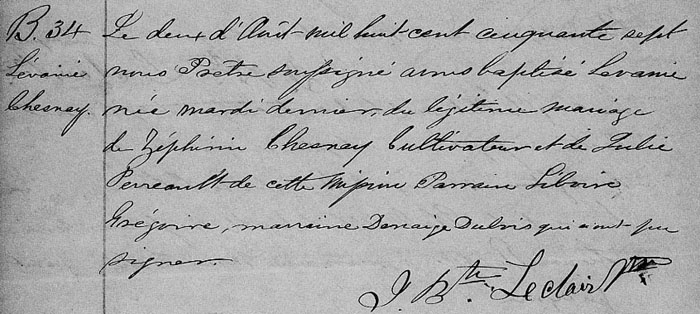 B. 34
Lévanie
Chesnay.
Le deux d'Août mil huit cent cinquante sept
nous Prêtre soussigné avons baptisé Levanie
née mardi dernier, du légitime mariage
de Zéphirin Chesnay Cultivateur et de Julie
Perreault de cette Mission Parrain Liboire
Grégoire, marraine Denaige Dubois qui n'ont pu
signer.
J. Bte. Leclair Ptre